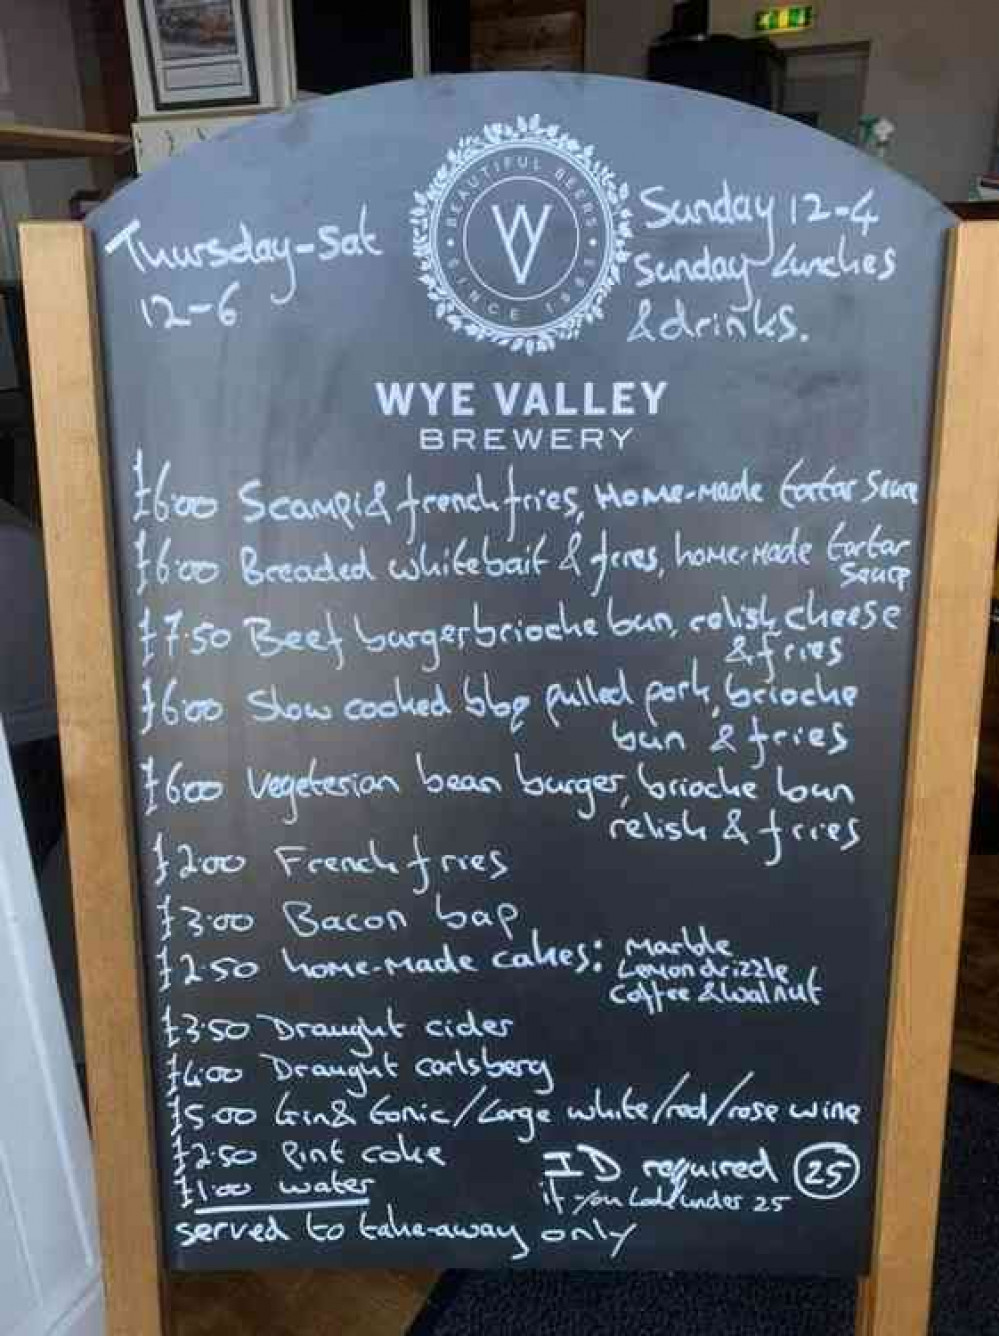 Thursday-Sat
12-6
BEAUTIFUL BEERS
SINCE 1985
W
Sunday 12-4
Sunday Lunches
& drinks.
WYE VALLEY
BREWERY
£6.00 Scampi & french fries, Home-made tartar Sauce
£6.00 Breaded whitebait & fries, home-made tartar
Sauce
£7.50 Beef burger brioche bun, relish, cheese
& fries
£6.00 Slow cooked bbq pulled pork, brioche
bun & fries
£6.00 Vegeterian bean burger, brioche bun
relish & fries
£2.00 French fries
£3.00 Bacon bap
£2.50 home-made cakes: Marble
Lemon drizzle
Coffee & Walnut
£3.50 Draught cider
£4.00 Draught carlsberg
£5.00 Gin & tonic/Large white/red/rose wine
£2.50 Pint coke
£1.00 water
ID required 25
if you look under 25
served to take-away only